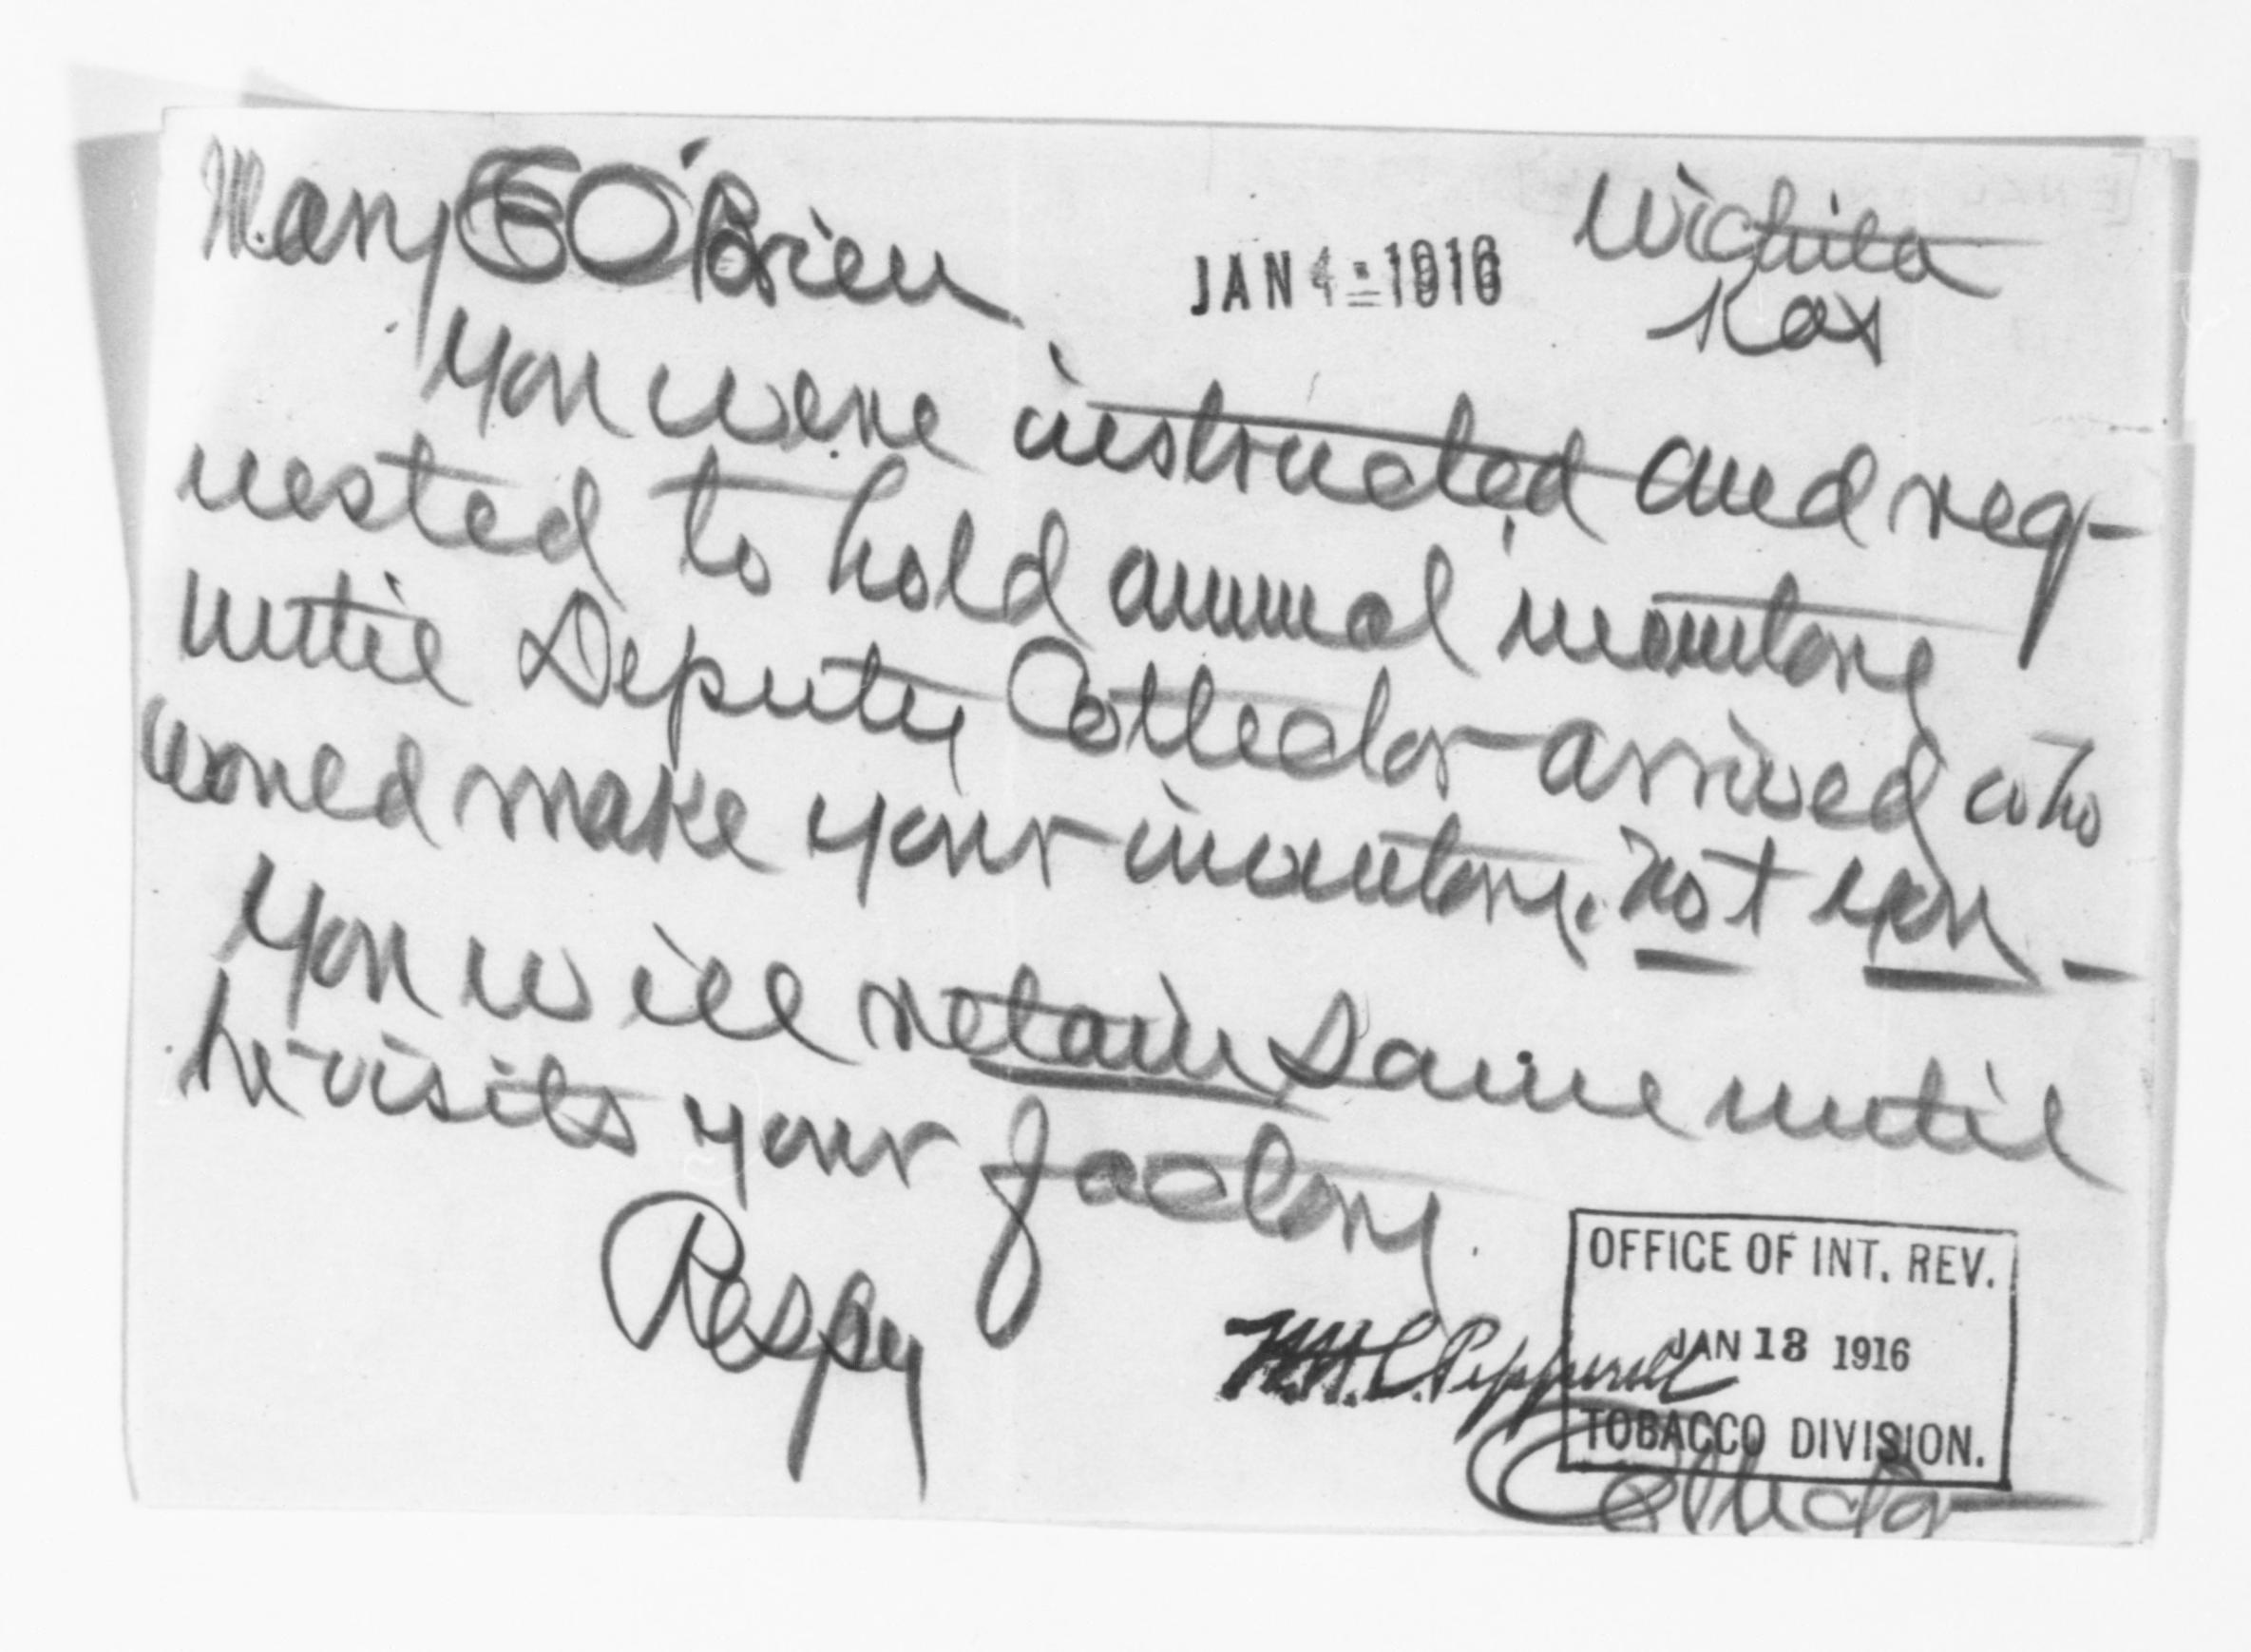 Mary E O'Brien
JAN 4 - 1916
Wichita
Kas
You were instructed and req-
uested to hold annual inventory
until Deputy Collector arrived who
would make your inventory. Not you -
You will retain same until
he visits your factory.
Respy
Wm. H. L. Pepperell
Collector
OFFICE OF INT. REV.
JAN 13 1916
TOBACCO DIVISION.